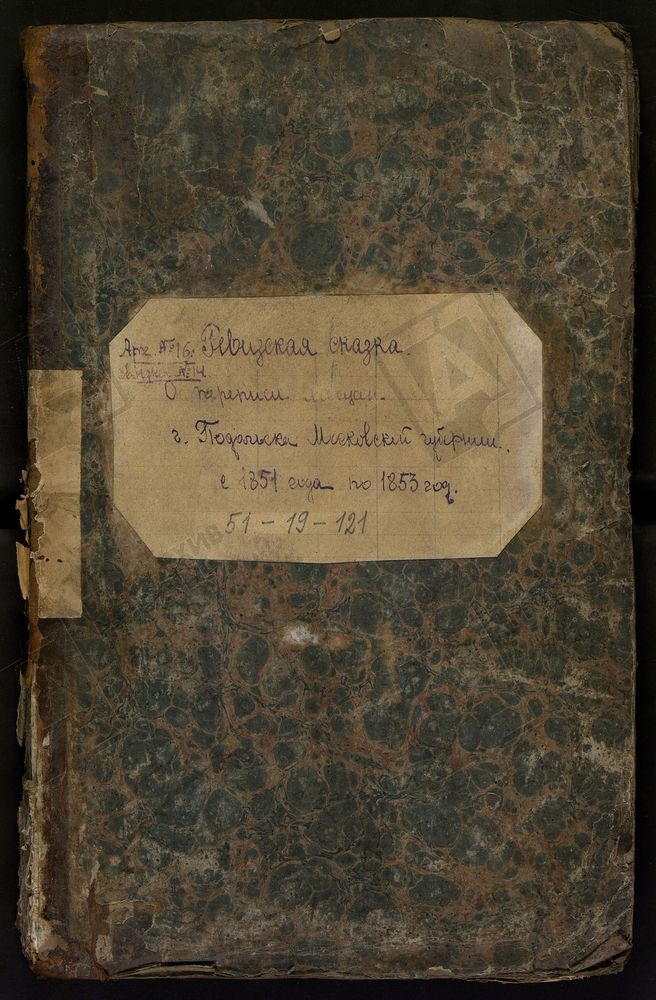 Арх. №16. Ревизская сказка.
Связка №14.
О переписи мещан.
г. Подольска Московской губернии.
с 1851 года по 1853 год.
51-19-121